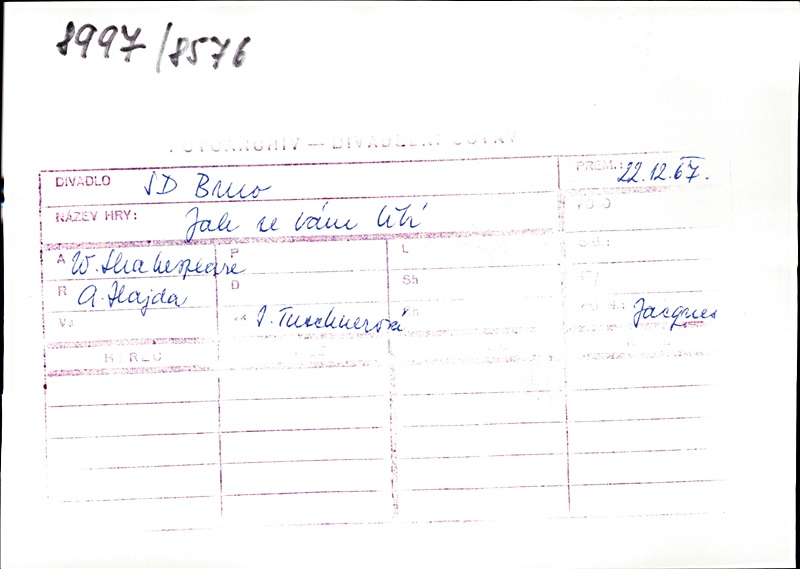 8997/8576
FOTOARCHIV — DIVADELNÍ FOTKY
DIVADLO SD Brno PREM.: 22.12.67.
NÁZEV HRY: Jak se vám líbí
A W. Shakespeare P L
R A. Hajda D Sh
I. Tuschnerová Jacques
HEREC